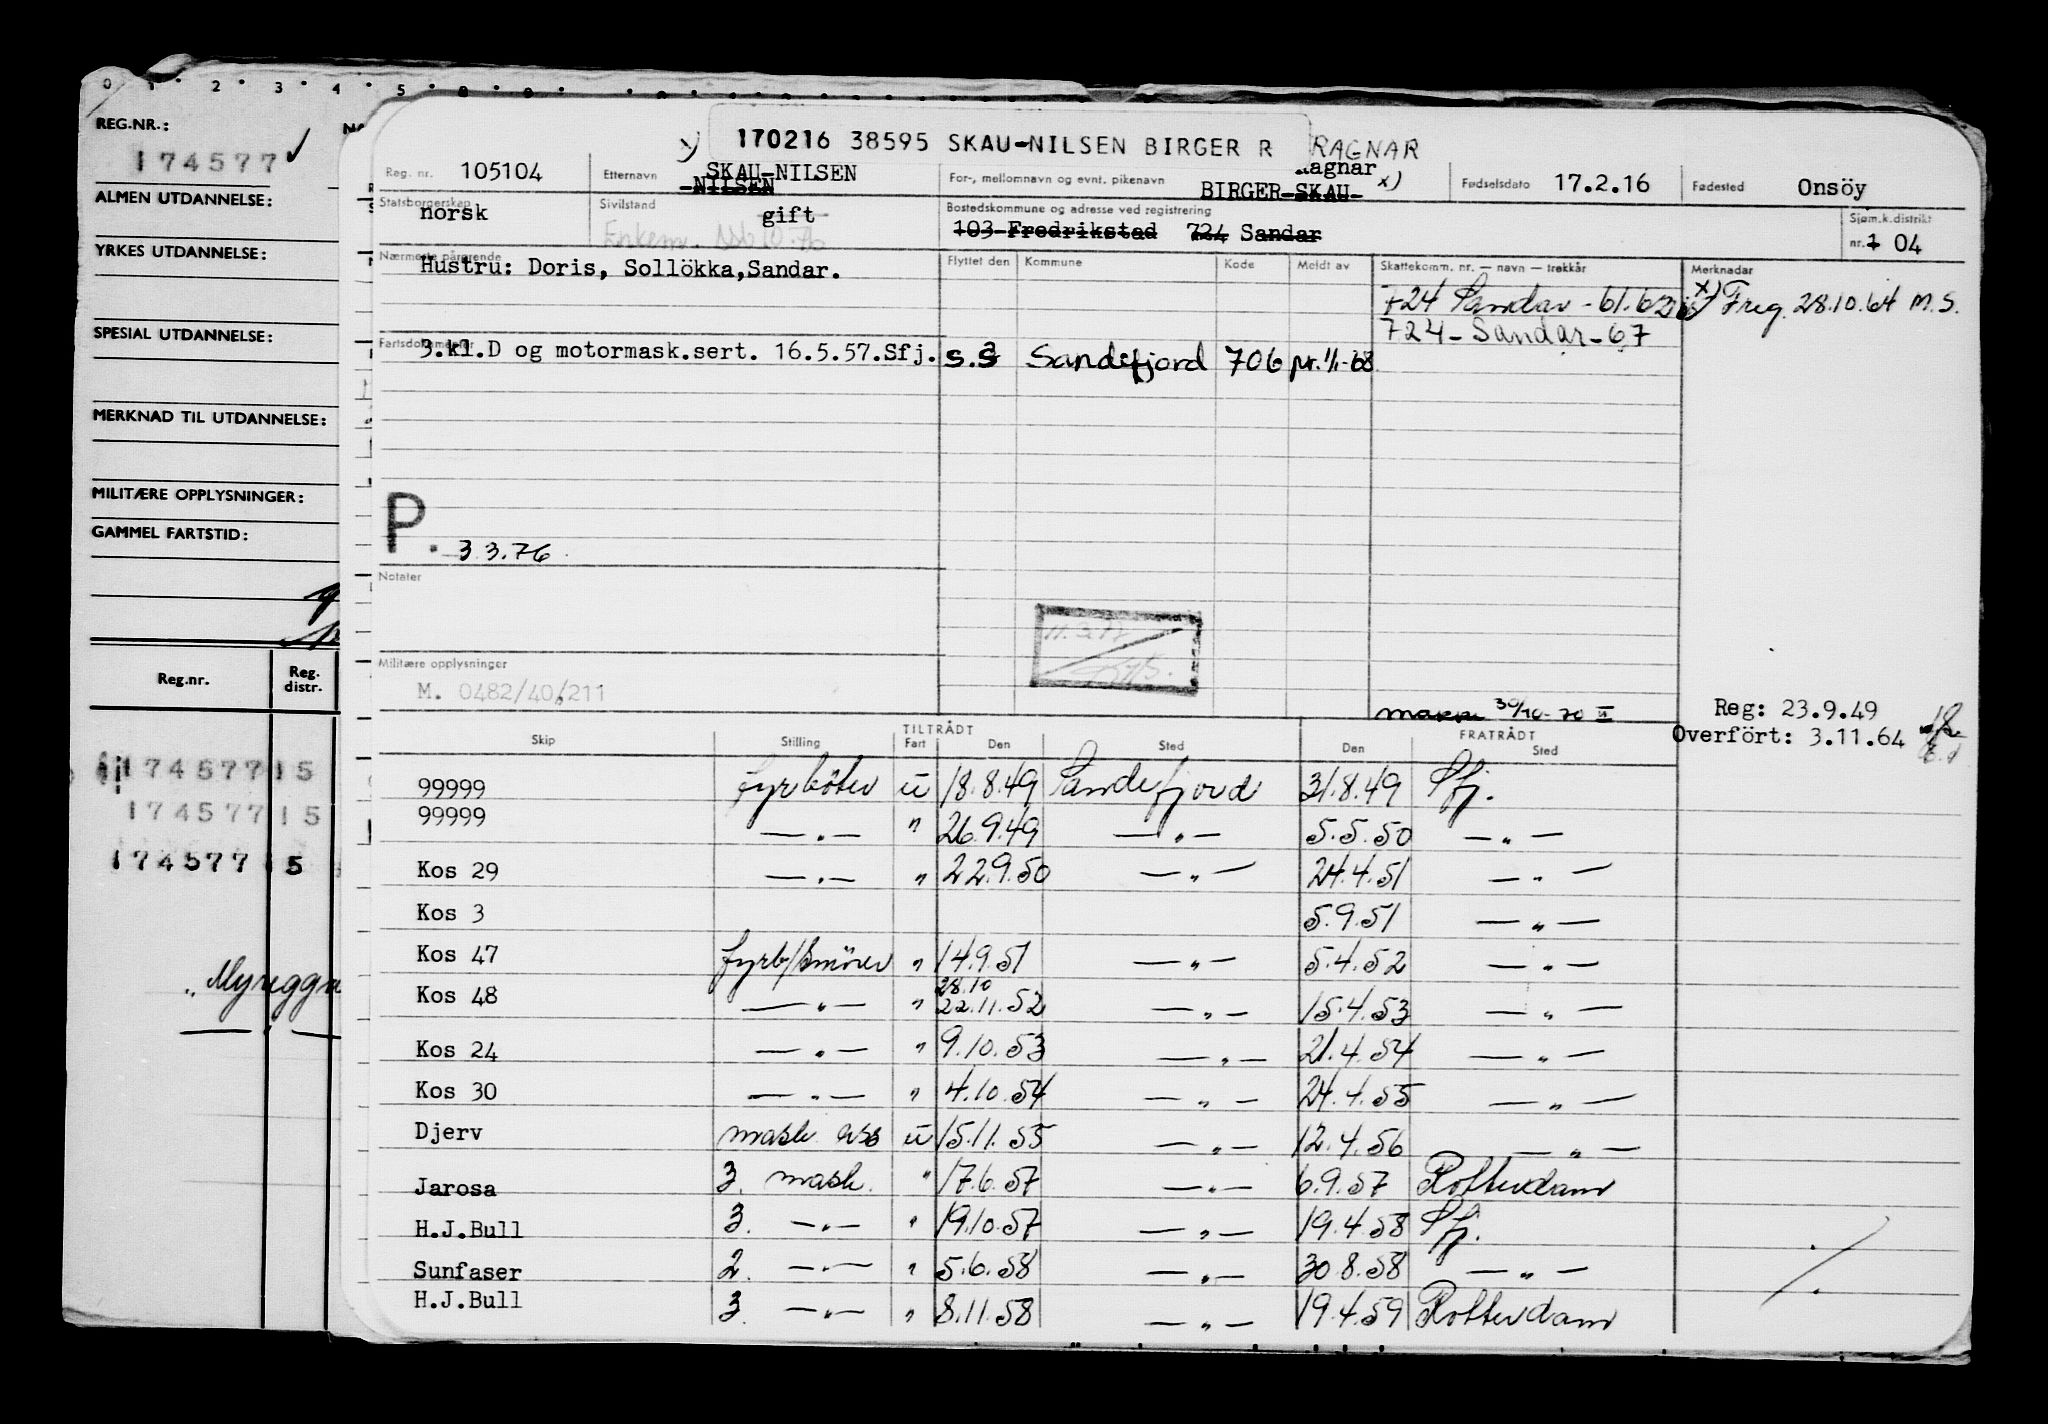 0 1 2 3 4 5
REG.NR.:
174577 ✓
ALMEN UTDANNELSE:
YRKES UTDANNELSE:
SPESIAL UTDANNELSE:
MERKNAD TIL UTDANNELSE:
MILITÆRE OPPLYSNINGER:
GAMMEL FARTSTID:
Reg.nr. Reg. distr.
174577 15
174577 15
174577 15
x) 170216 38595 SKAU-NILSEN BIRGER R RAGNAR
Reg. nr. 105104 Etternavn SKAU-NILSEN For-, mellomnavn og evnt. pikenavn Ragnar x) Fødselsdato 17.2.16 Fødested Onsöy
-NILSEN BIRGER-SKAU-
Statsborgerskap norsk Sivilstand gift Bostedskommune og adresse ved registrering Sjøm.k.distrikt
Enkem. 103 Fredrikstad 724 Sandar nr. 1 04
Nærmeste pårørende Flyttet den Kommune Kode Meldt av Skattekomm. nr. — navn — trekkår Merknadar
Hustru: Doris, Sollökka,Sandar.
724 Sandar - 61.62 x) Freg. 28.10.64 M.S.
724 - Sandar - 67
Fartsdokumenter
3.kl.D og motormask.sert. 16.5.57.Sfj. s.å Sandefjord 706 pr. 1/1-68
P. 3.3.76
Notater
Militære opplysninger
M. 0482/40/211
30/10-70 II
Reg: 23.9.49
Overfört: 3.11.64
TILTRÅDT FRATRÅDT
Skip Stilling Fart Den Sted Den Sted
99999 fyrböter u 18.8.49 Sandefjord 31.8.49 Sfj.
99999 —"— " 26.9.49 —"— 5.5.50 —"—
Kos 29 —"— " 22.9.50 —"— 24.4.51 —"—
Kos 3 5.9.51 —"—
Kos 47 fyrb/smörer " 14.9.51 —"— 5.4.52 —"—
28.10
Kos 48 —"— " 22.11.52 —"— 15.4.53 —"—
Kos 24 —"— " 9.10.53 —"— 21.4.54 —"—
Kos 30 —"— " 4.10.54 —"— 24.4.55 —"—
Djerv mask ass u 15.11.55 —"— 12.4.56 —"—
Jarosa 3. mask. " 17.6.57 —"— 6.9.57 Rotterdam
H.J.Bull 3. —"— " 19.10.57 —"— 19.4.58 Sfj.
Sunfaser 2. —"— " 5.6.58 —"— 30.8.58 —"—
H.J.Bull 3. —"— " 8.11.58 —"— 19.4.59 Rotterdam
./.